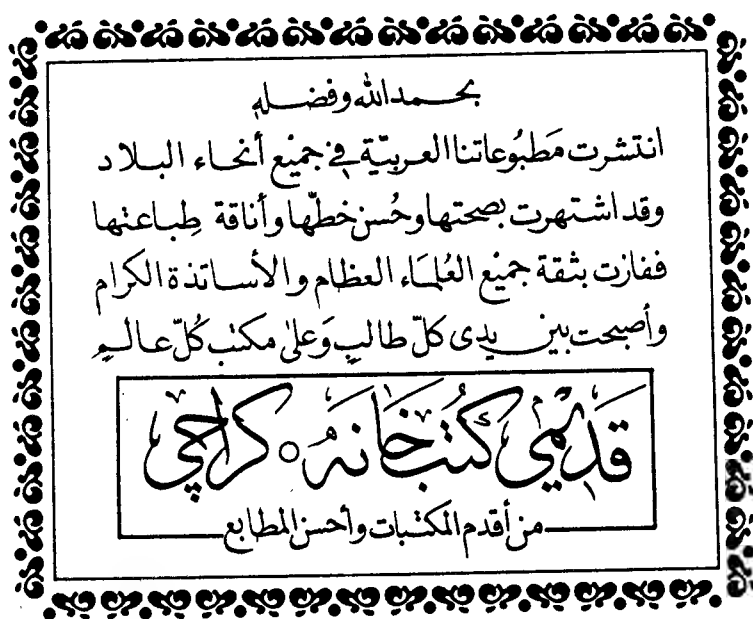 بحمد الله وفضله
انتشرت مَطبُوعاتنا العربيّة في جميْع أنحاء البلاد
وقد اشتهرت بصحتها وحُسن خطّها وأناقة طِباعتها
ففازت بثقة جميْع العُلمَاء العظام والأساتذة الكرام
وأصبحت بين يدى كلّ طالبٍ وَعلىٰ مكتب كُلّ عالمٍ
قديمي كتب خانه ○ كراچی
من أقدم المكتبات وأحسن المطابع